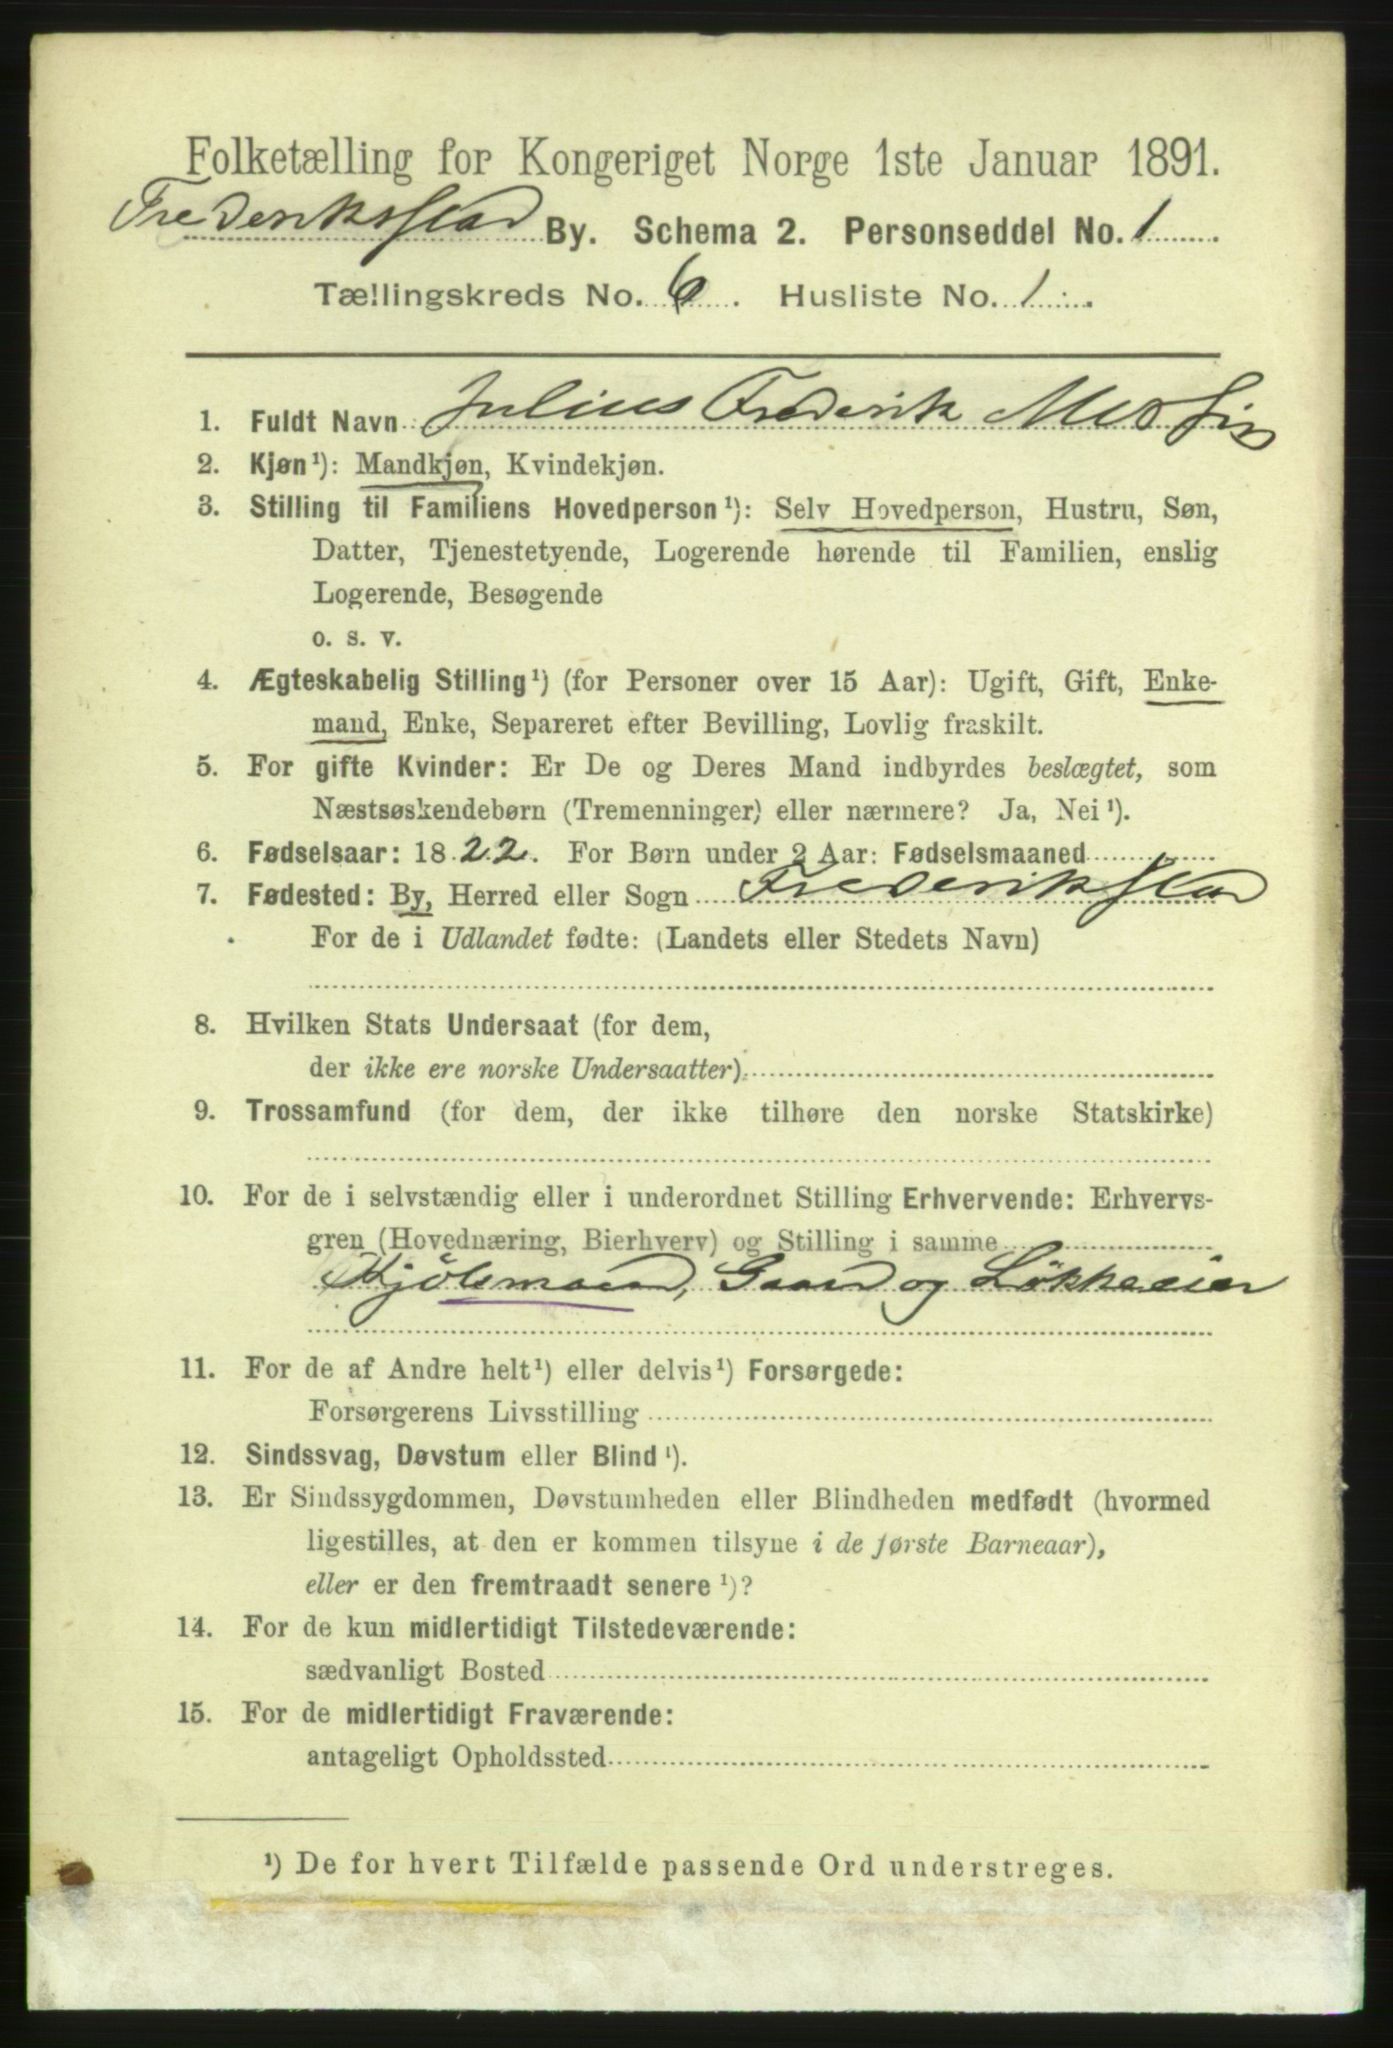 Folketælling for Kongeriget Norge 1ste Januar 1891.
Frederiksstad By. Schema 2. Personseddel No. 1
Tællingskreds No. 6. Husliste No. 1.
1. Fuldt Navn Julius Frederik
2. Kjøn¹): Mandkjøn, Kvindekjøn.
3. Stilling til Familiens Hovedperson¹): Selv Hovedperson, Hustru, Søn,
Datter, Tjenestetyende, Logerende hørende til Familien, enslig
Logerende, Besøgende
o. s. v.
4. Ægteskabelig Stilling¹) (for Personer over 15 Aar): Ugift, Gift, Enke-
mand, Enke, Separeret efter Bevilling, Lovlig fraskilt.
5. For gifte Kvinder: Er De og Deres Mand indbyrdes beslægtet, som
Næstsøskendebørn (Tremenninger) eller nærmere? Ja, Nei¹).
6. Fødselsaar: 1822. For Børn under 2 Aar: Fødselsmaaned
7. Fødested: By, Herred eller Sogn Frederikstad
For de i Udlandet fødte: (Landets eller Stedets Navn)
8. Hvilken Stats Undersaat (for dem,
der ikke ere norske Undersaatter)
9. Trossamfund (for dem, der ikke tilhøre den norske Statskirke)
10. For de i selvstændig eller i underordnet Stilling Erhvervende: Erhvervs-
gren (Hovednæring, Bierhverv) og Stilling i samme
Gaard og Løkkeeier
11. For de af Andre helt¹) eller delvis¹) Forsørgede:
Forsørgerens Livsstilling
12. Sindssvag, Døvstum eller Blind¹).
13. Er Sindssygdommen, Døvstumheden eller Blindheden medfødt (hvormed
ligestilles, at den er kommen tilsyne i de første Barneaar),
eller er den fremtraadt senere¹)?
14. For de kun midlertidigt Tilstedeværende:
sædvanligt Bosted
15. For de midlertidigt Fraværende:
antageligt Opholdssted
¹) De for hvert Tilfælde passende Ord understreges.